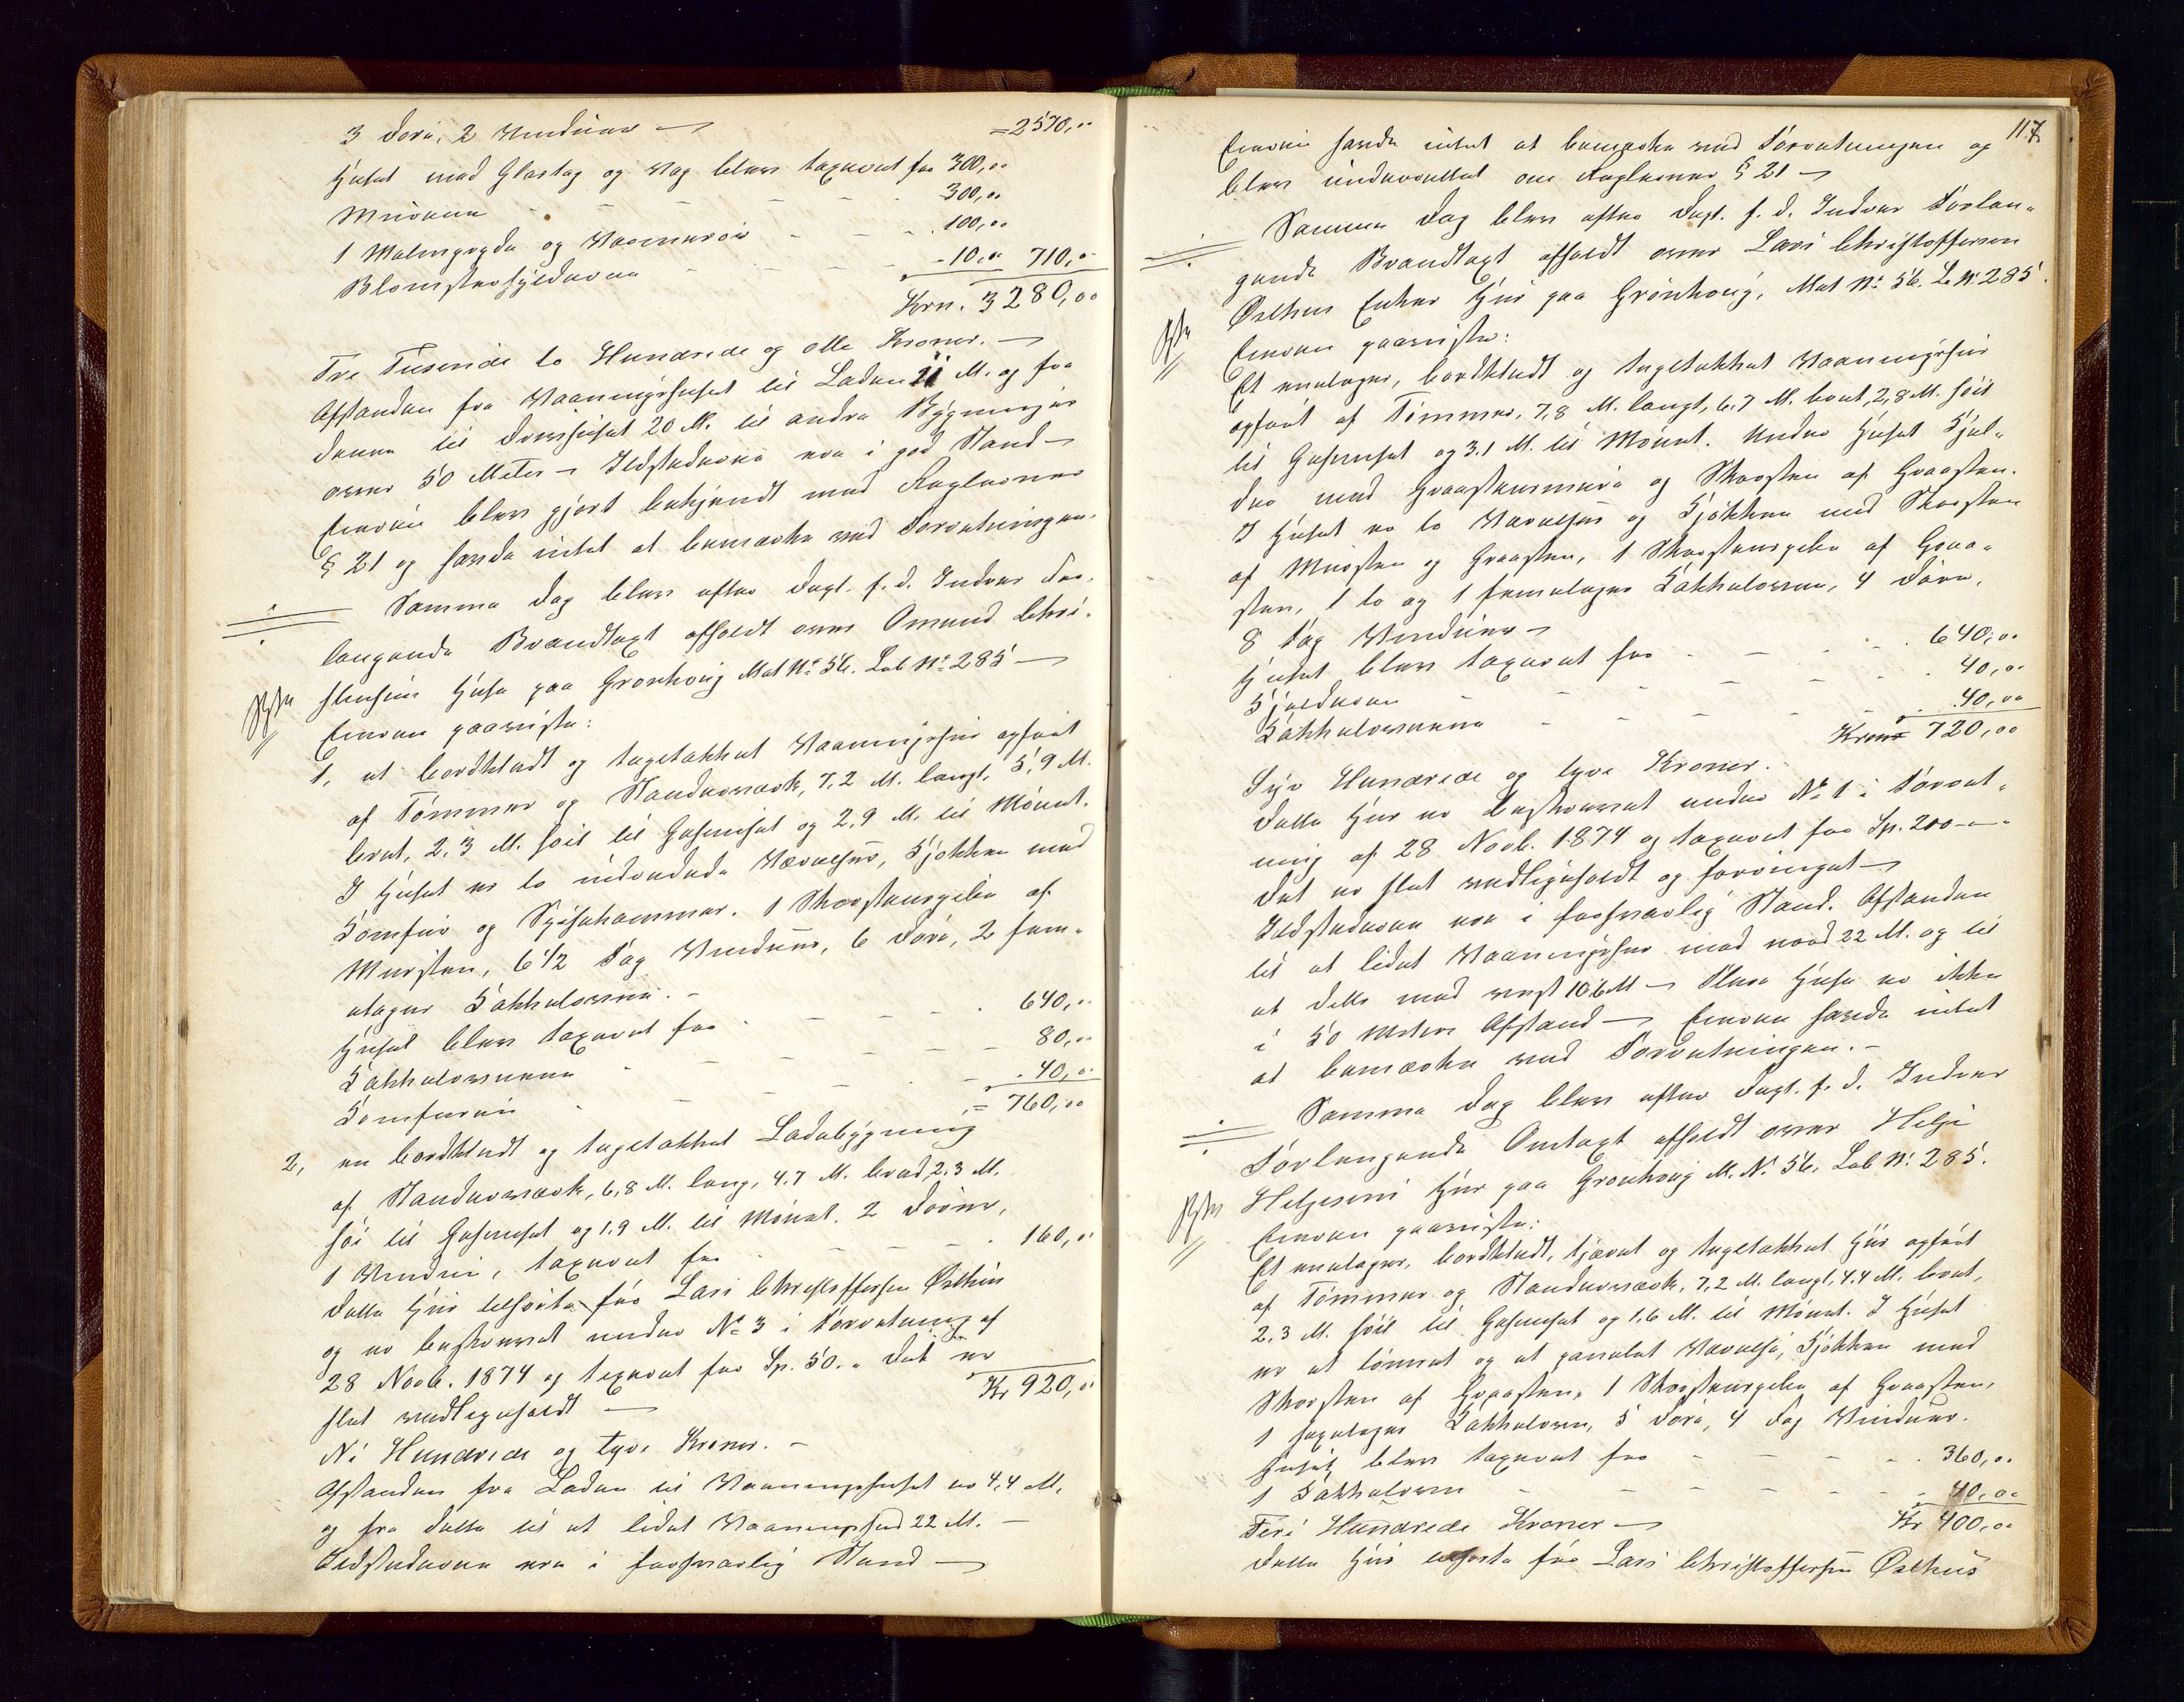 3 Døre, 2 Vinduer — =2570,00
Huset med Glastag og Væg blev taxeret for 300,00
Murene - - - - 300,00
1 Vatngryde og Varmerør - - 100,00
Blomsterhylderne - - - 10,00 710,00
Krn. 3280,00
Tre Tusende to Hundrede og otti Kroner. —
Afstanden fra Vaaningshuset til Laden 21 M. og fra
denne til Drivhuset 20 M. til andre Bygninger
over 50 Meter — Ildstederne ere i god Stand —
Eieren blev gjort bekjendt med Reglernes
§ 21 og havde intet at bemærke ved Forretningen.
Samme Dag blev efter Dagl. f. d. Indres For-
langende Brandtaxt afholdt over Omund Chri-
stensens Huse paa Grønhoug Mat No 56. Løb No 285 —
Eieren paaviste:
1, et bordklædt og tagstakket Vaaningshus opført
af Tømmer og Standerværk, 7,2 M. langt, 5,9 M.
bredt, 2,3 M. høit til Gesimset og 2,9 M. til Mønet.
I Huset er to indredede Værelser, Kjøkken med
Komfur og Spisekammer. 1 Skorstenspibe af
Mursten, 6 1/2 Fag Vinduer, 6 Døre, 2 fem-
etages Kakkelovne. —
Huset blev taxeret for - - - 640,00
Kakkelovnene - - - - 80,00
Komfuren - - - - 40,00
= 760,00
2, en bordklædt og tagstakket Ladebygning
af Standerværk, 6,8 M. lang, 4.7 M. bred, 2.3 M.
høi til Gesimset og 1.9 M. til Mønet. 2 Døre,
1 Vindu, taxeret for - - - 160,00
Dette Hus tilhørte før Lars Christoffersen Østhus
og er beskrevet under No 3 i Forretning af
28 Novb. 1874 og taxeret for Sp. 50. Det er
slet vedligeholdt — Kr 920,00
Ni Hundrede og tyve Kroner. —
Afstanden fra Laden til Vaaningshuset er 4,4 M.
og fra dette til et lidet Vaaningshus 22 M. —
Ildstederne ere i forsvarlig Stand —
117
Eieren havde intet at bemærke ved Forretningen og
blev underrettet om Reglernes § 21 —
Samme Dag blev efter Dagl. f. d. Indres Forlan-
gende Brandtaxt afholdt over Lars Christoffersen
Østhus Enkes Hus paa Grønhoug, Mat No 56. L. No 285.
Eieren paaviste:
Et enetages, bordklædt og tagstakket Vaaningshus
opført af Tømmer, 7,8 M. langt, 6.7 M. bredt, 2,8 M. høit
til Gesimset og 3.1 M. til Mønet. Under Huset Kjel-
der med Graastensmure og Skorsten af Graasten.
I Huset er to Værelser og Kjøkken med Skorsten
af Mursten og Graasten, 1 Skorstenspibe af Graa-
sten, 1 to og 1 femetages Kakkelovn, 4 Døre,
8 Fag Vinduer —
Huset blev taxeret for - - - 640,00
Kjelderen - - - - 40,00
Kakkelovnene - - - - 40,00
Kroner 720,00
Syv Hundrede og tyve Kroner.
Dette Hus er beskrevet under No 1 i Forret-
ning af 28 Novb. 1874 og taxeret for Sp. 200 —
Det er slet vedligeholdt og forringet —
Ildstederne ere i forsvarlig Stand. Afstanden
til et lidet Vaaningshus mod nord 22 M. og til
et ditto mod vest 10,6 M — Flere Huse er ikke
i 50 Meters Afstand — Eieren havde intet
at bemærke ved Forretningen. —
Samme Dag blev efter Dagl. f. d. Indres
Forlangende Omtaxt afholdt over Helje
Heljesens Hus paa Grønhoug M. No 56, Løb No 285.
Eieren paaviste:
Et enetages, bordklædt, tjæret og tagstakket Hus opført
af Tømmer og Standerværk, 7,2 M. langt, 4.4 M. bredt,
2,3 M. høit til Gesimset og 1,6 M. til Mønet. I Huset
er et tømret og et panelet Værelse, Kjøkken med
Skorsten af Graasten, 1 Skorstenspibe af Graasten,
1 sexetages Kakkelovn, 5 Døre, 4 Fag Vinduer.
Huset blev taxeret for - - - 360,00
1 Kakkelovn - - - - 40,00
Fire Hundrede Kroner — Kr 400,00
Dette Hus tilhørte før Lars Christoffersen Østhus